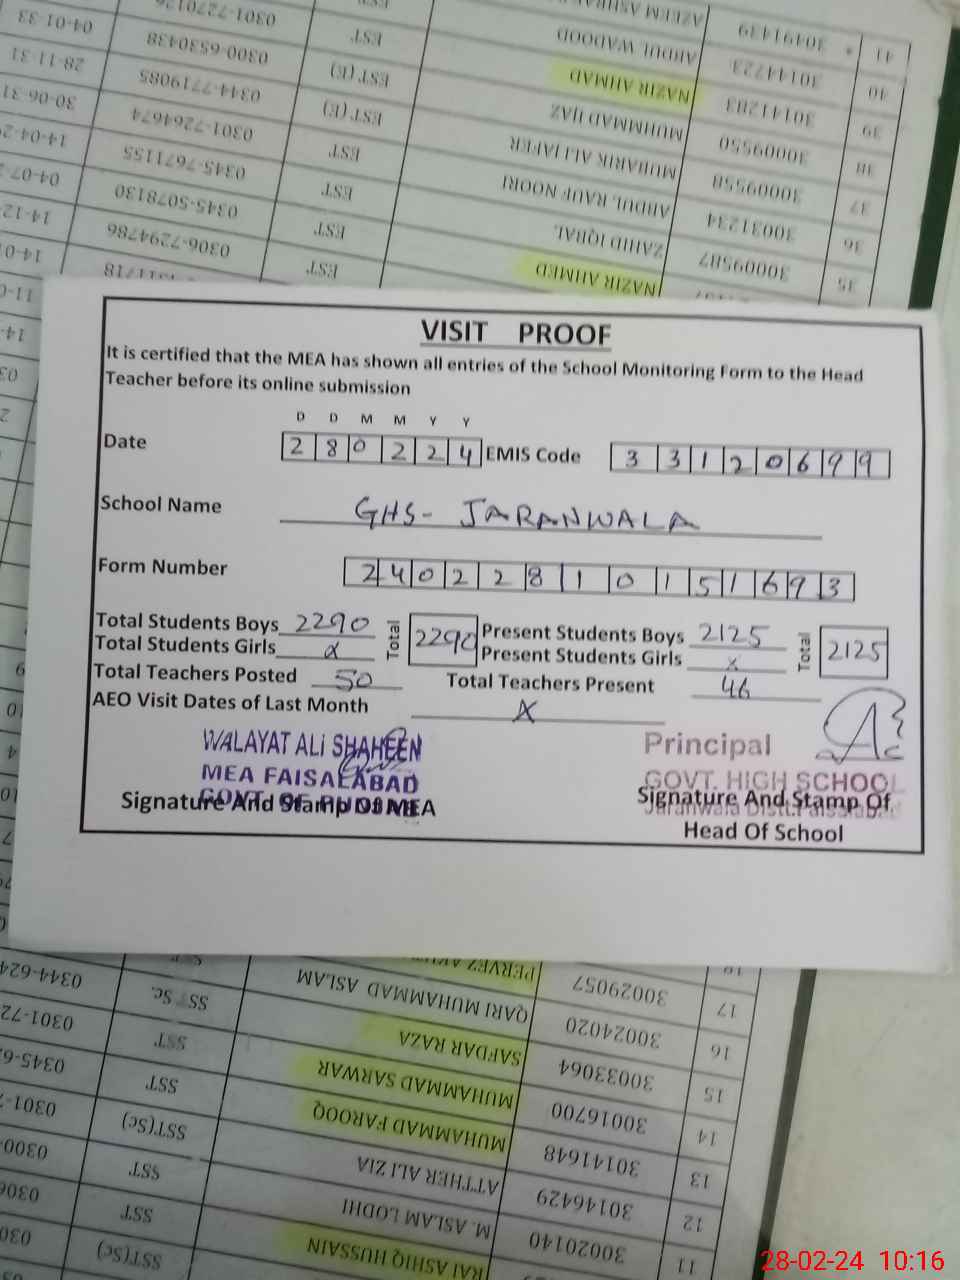 41 * 30491439 AZEEM ASHRAF EST 0301-7270126 04-01-33
40 30144723 ABDUL WADOOD EST 0300-6530438 28-11-31
39 30141283 NAZIR AHMAD EST (E) 0344-7719085 30-06-31
38 30009550 MUHMMAD IJAZ EST (E) 0301-7264674
37 30009558 MUBARIK ALI JAFER EST 0345-7671155
36 30031234 ABDUL RAUF NOORI EST 0345-5078130
35 30009587 ZAHID IQBAL EST 0306-7294786
NAZIR AHMED EST
VISIT PROOF
It is certified that the MEA has shown all entries of the School Monitoring Form to the Head
Teacher before its online submission
D D M M Y Y
Date 2 8 0 2 2 4 EMIS Code 3 3 1 2 0 6 9 9
School Name GHS- JARANWALA
Form Number 2 4 0 2 2 8 1 0 1 5 1 6 9 3
Total Students Boys 2290 Total 2290 Present Students Boys 2125 Total 2125
Total Students Girls x Present Students Girls x
Total Teachers Posted 50 Total Teachers Present 46
AEO Visit Dates of Last Month X
WALAYAT ALi SHAHEEN Principal
MEA FAISALABAD GOVT. HIGH SCHOOL
GOVT. OF PUNJAB Jaranwala Distt. Faisalabad
Signature And Stamp Of MEA Signature And Stamp Of
Head Of School
17 30029057 PERVEZ
16 30024020 QARI MUHAMMAD ASLAM SST Sc.
15 30033064 SAFDAR RAZA SST
14 30016700 MUHAMMAD SARWAR SST
13 30141648 MUHAMMAD FAROOQ SST(Sc)
12 30146429 ATTHER ALI ZIA SST
11 30020140 M. ASLAM LODHI SST
RAI ASHIQ HUSSAIN SST(Sc)
28-02-24 10:16